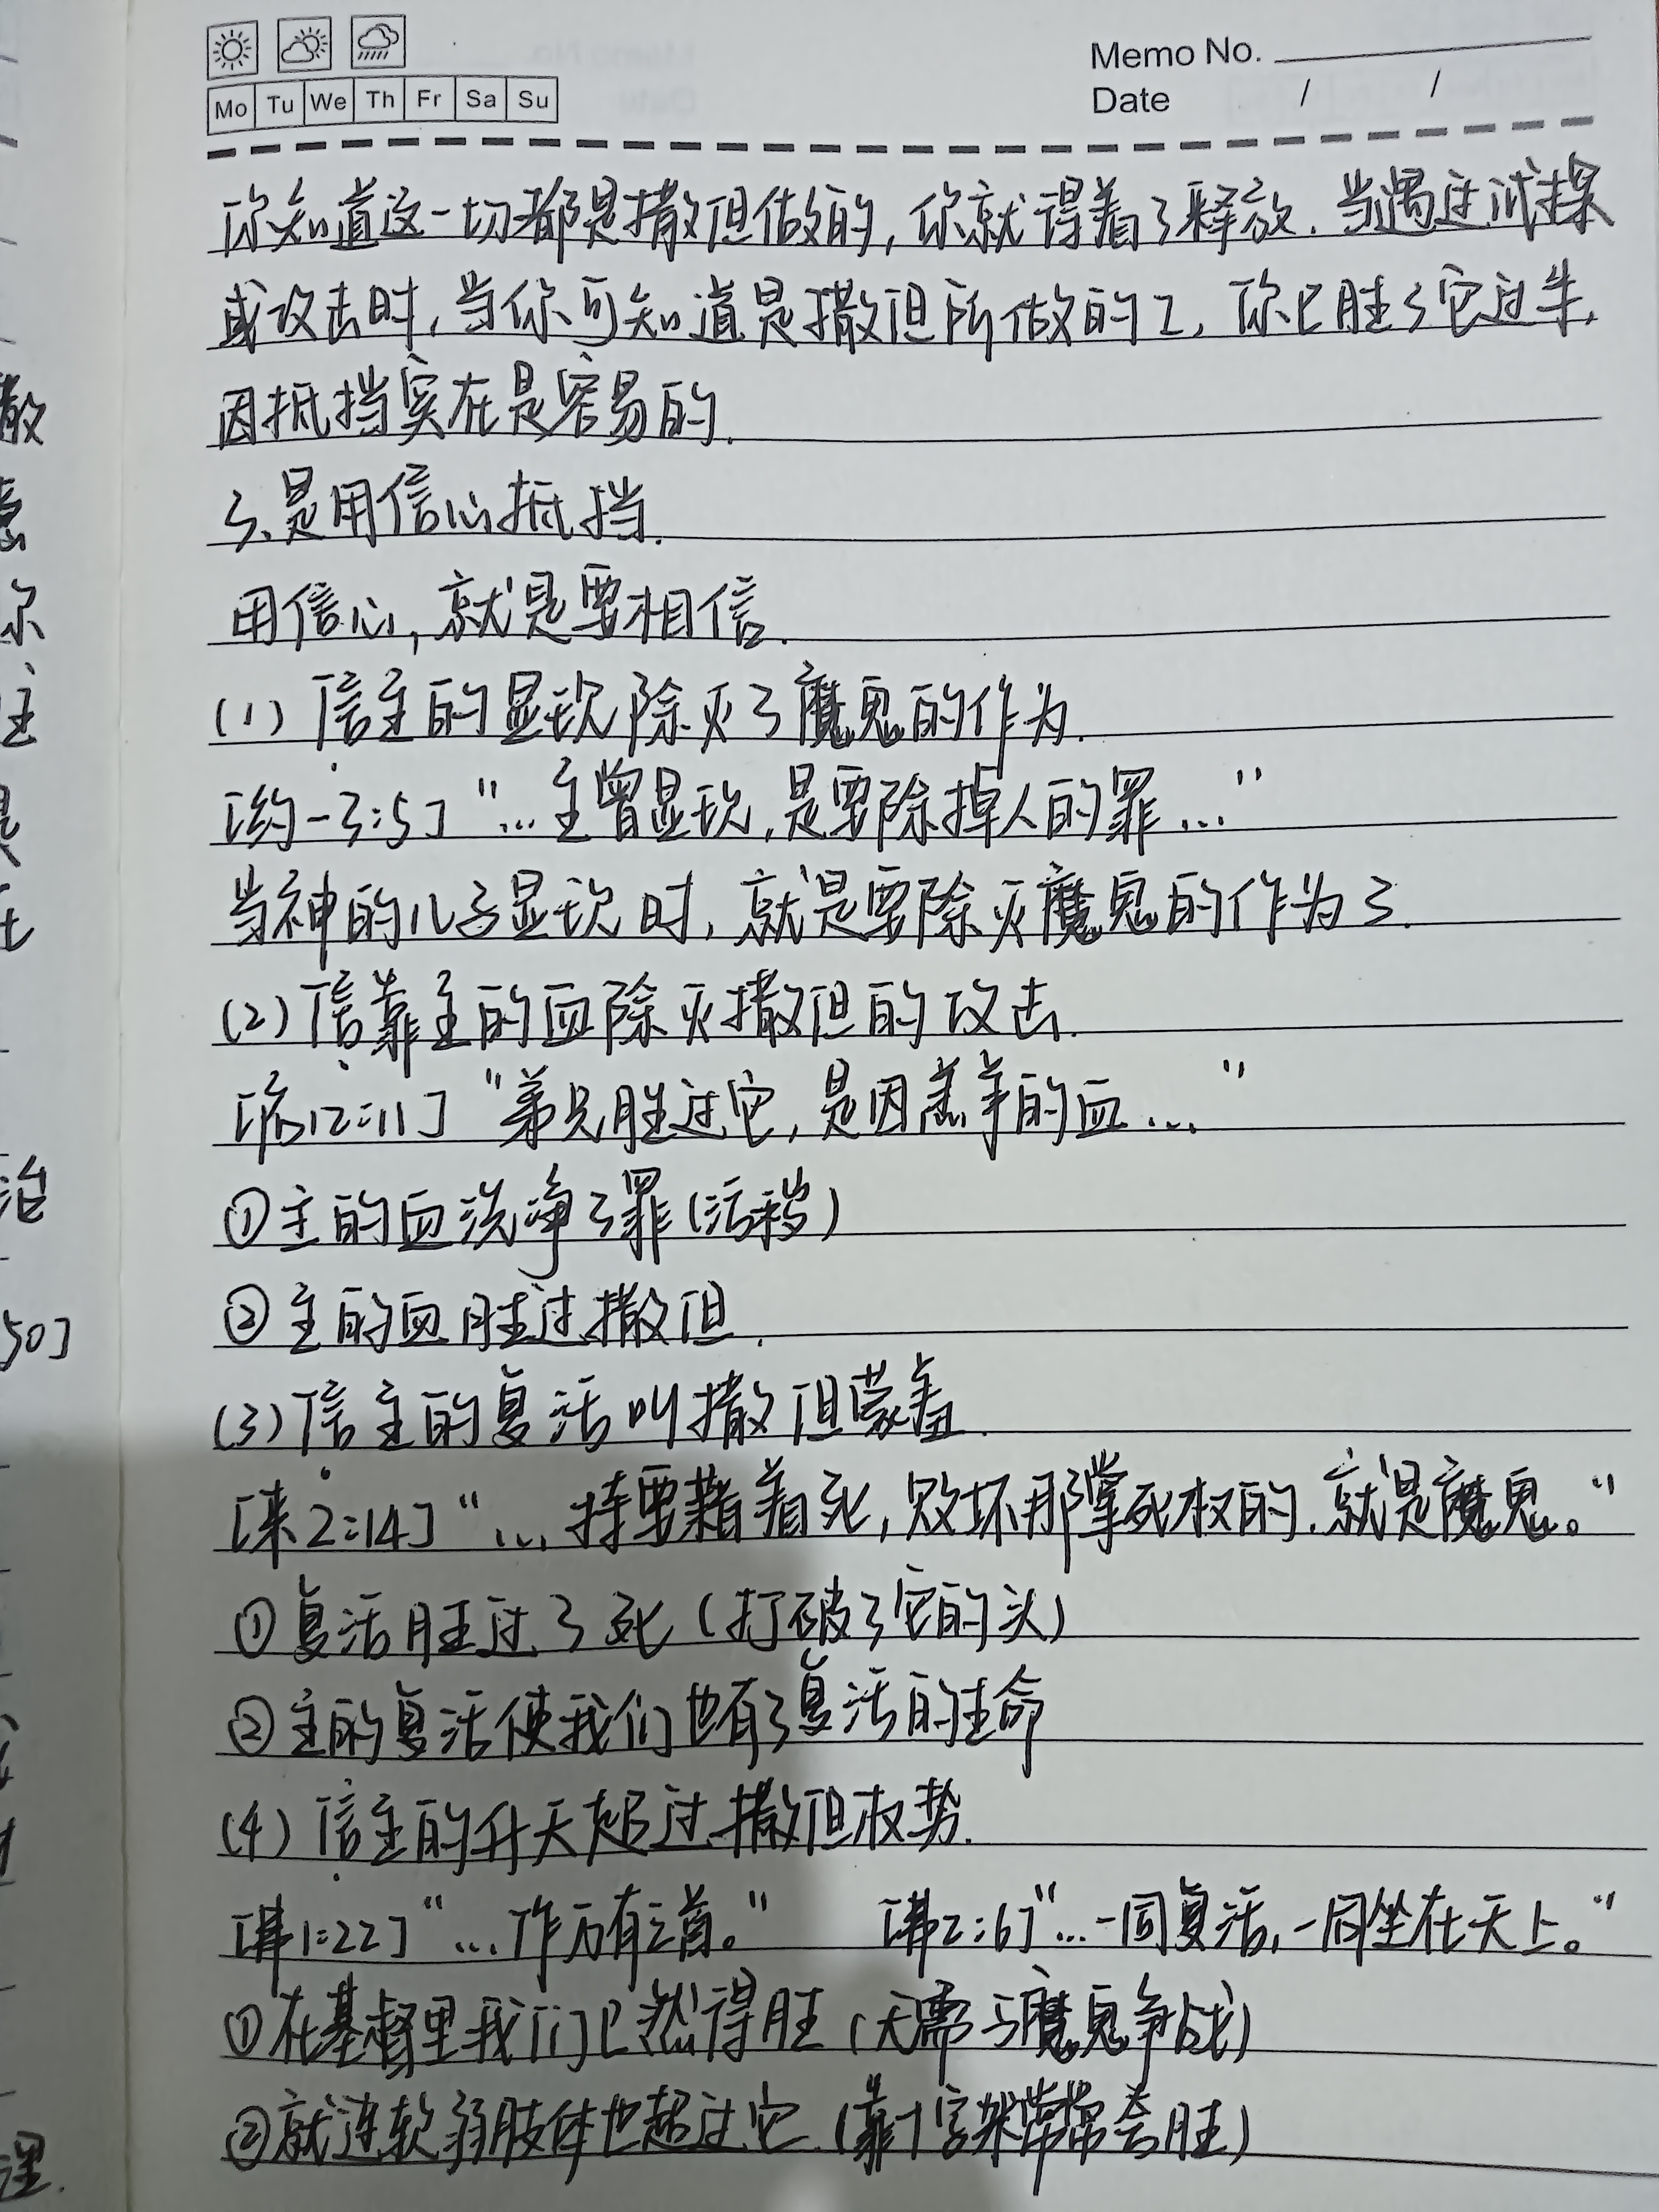 Memo No.
Mo Tu We Th Fr Sa Su
Date / /
你知道这一切都是撒但做的,你就得着了释放.当遇过试探
或攻击时,当你可知道是撒但所做的工,你已胜了它过半,
因抵挡实在是容易的.
3、是用信心抵挡.
用信心,就是要相信.
(1)信主的显现除灭了魔鬼的作为.
[约一3:5]“…主曾显现,是要除掉人的罪…”
当神的儿子显现时,就是要除灭魔鬼的作为了.
(2)信靠主的血除灭撒但的攻击.
[启12:11]“弟兄胜过它,是因羔羊的血…”
①主的血洗净了罪(污秽)
②主的血胜过撒但.
(3)信主的复活叫撒但蒙羞.
[来2:14]“…特要藉着死,败坏那掌死权的.就是魔鬼。”
①复活胜过了死(打破了它的头)
②主的复活使我们也有了复活的生命
(4)信主的升天超过撒但权势.
[弗1:22]“…作万有之首。” [弗2:6]“…一同复活,一同坐在天上。”
①在基督里我们已然得胜(无需与魔鬼争战)
②就连软弱肢体也超过它.(靠十字架常常夸胜)
散
你
主
是
治
50]
理.